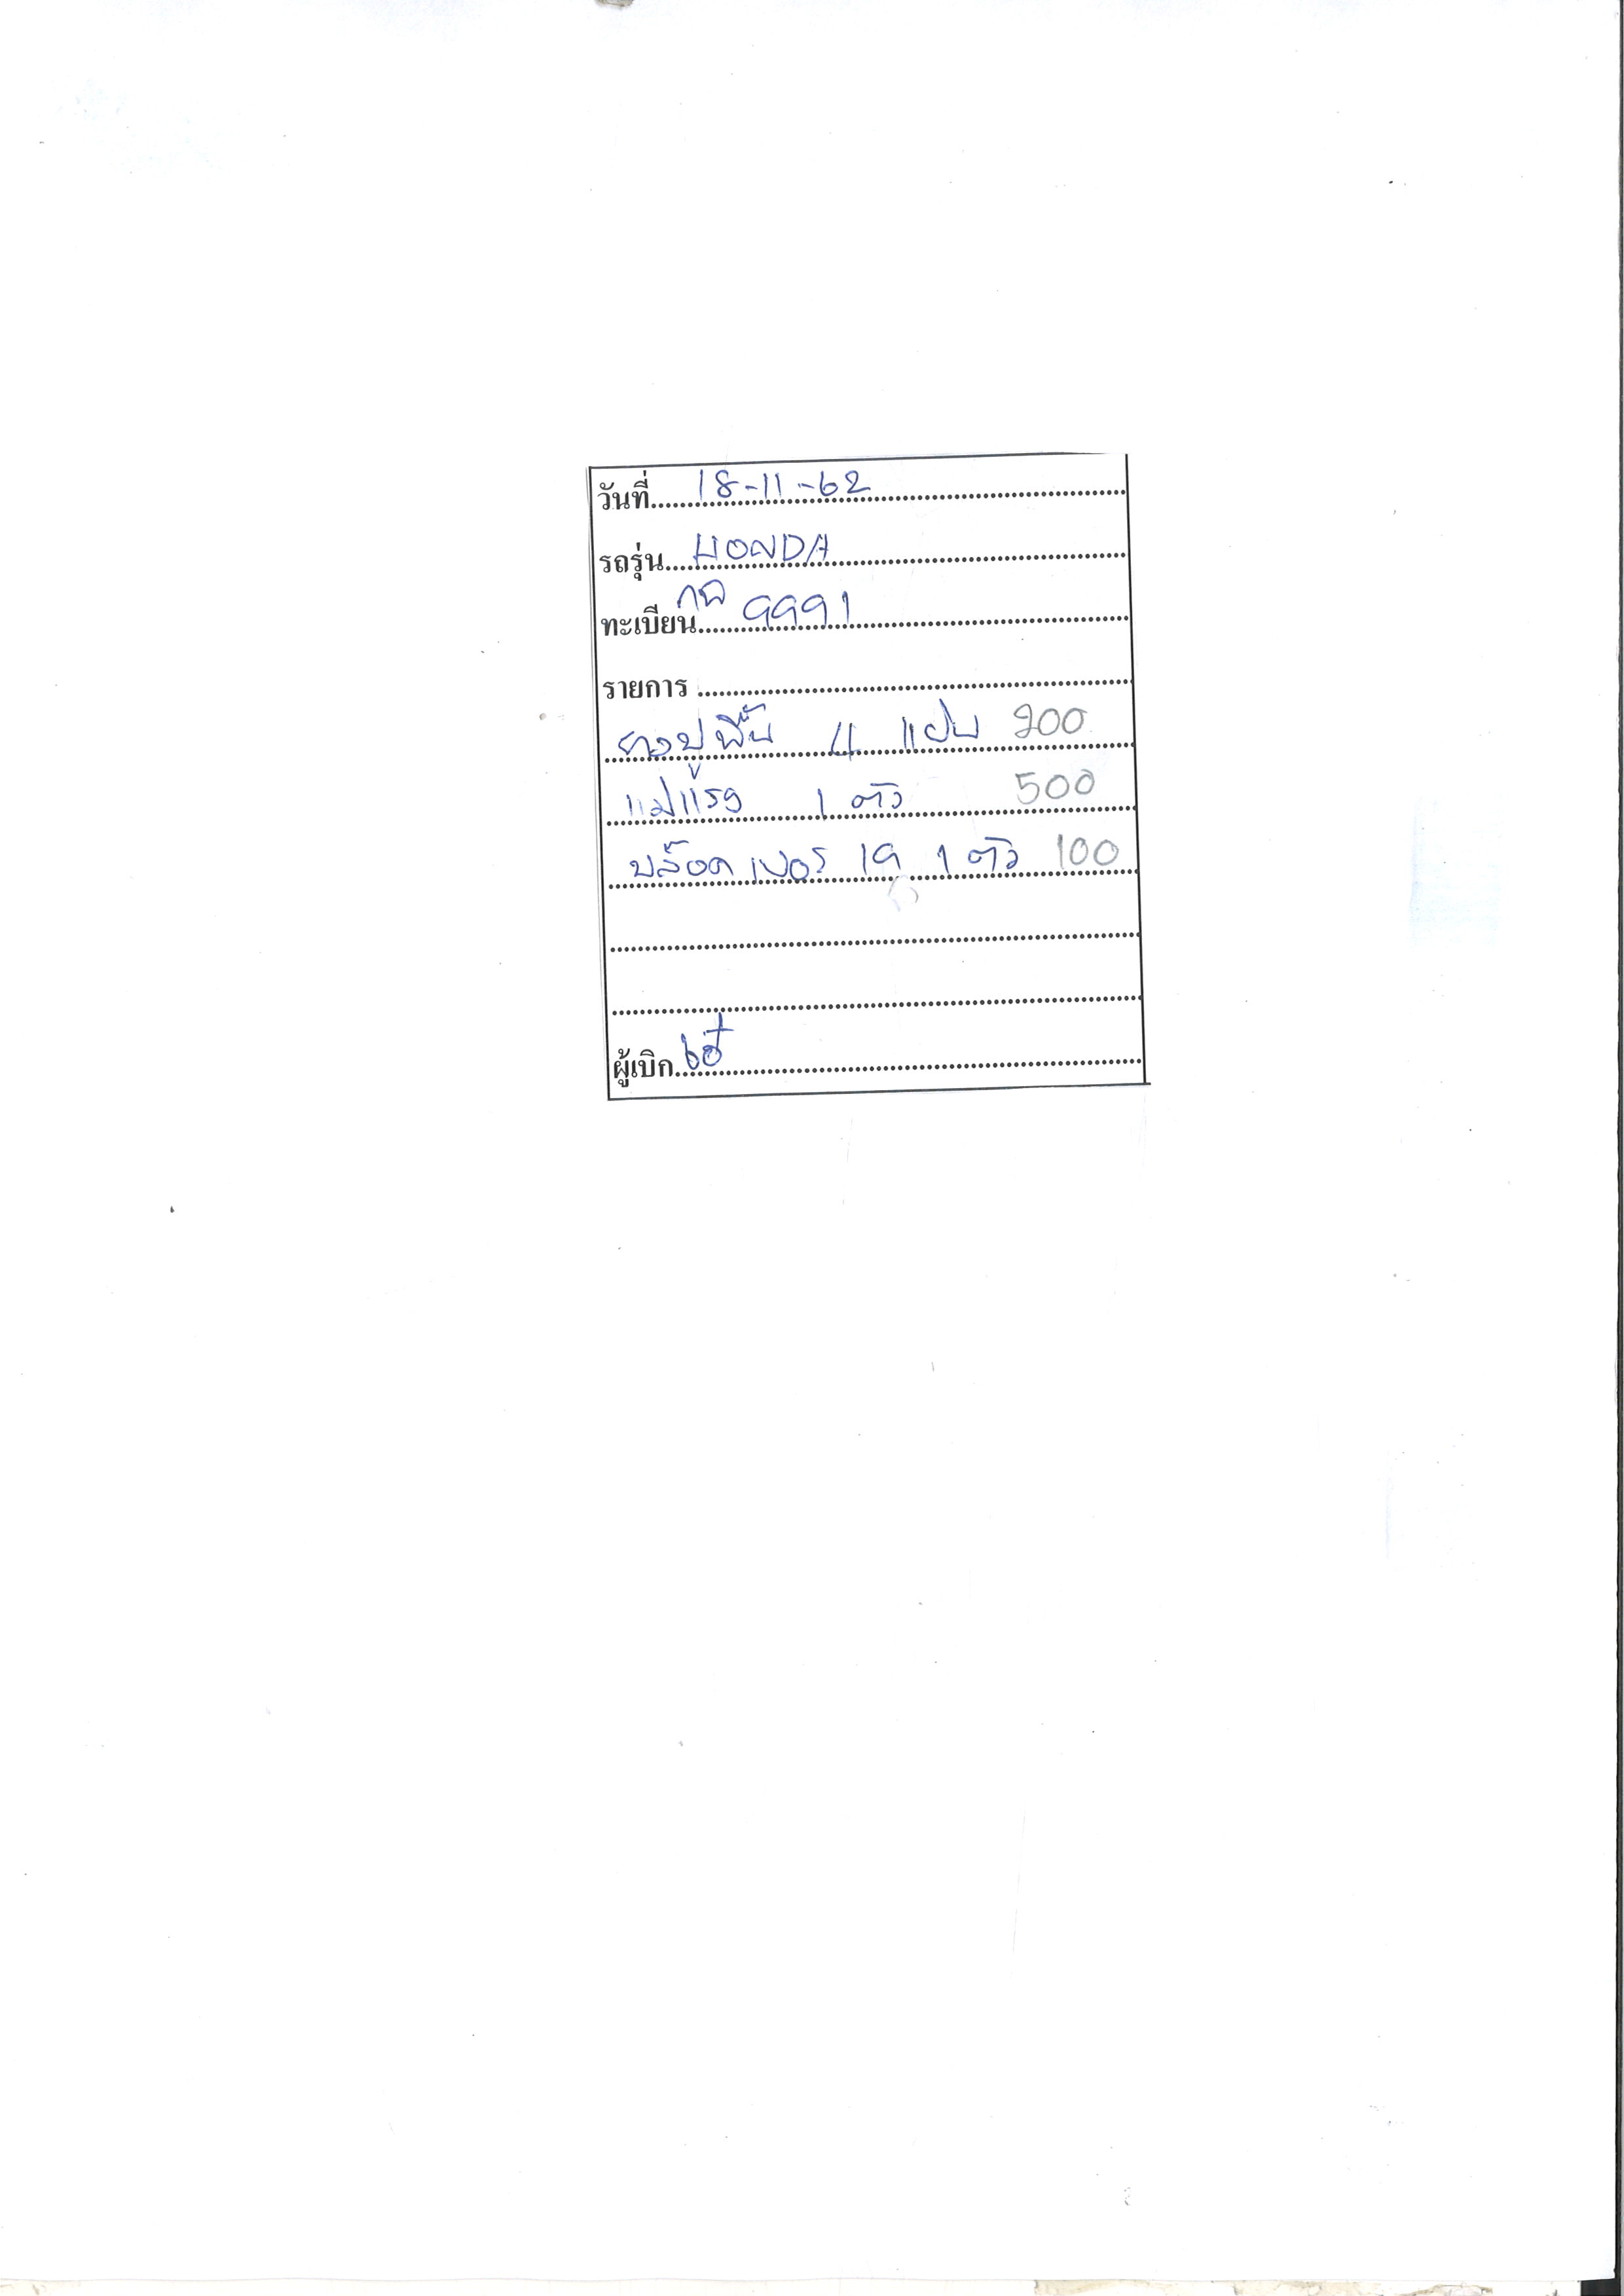 วันที่ 18-11-62
รถรุ่น HONDA
ทะเบียน 9991
รายการ
ยางปูพื้น 4 แผ่น 200
แม่แรง 1 ตัว 500
บล๊อค เบอร์ 19 1 ตัว 100
ผู้เบิก